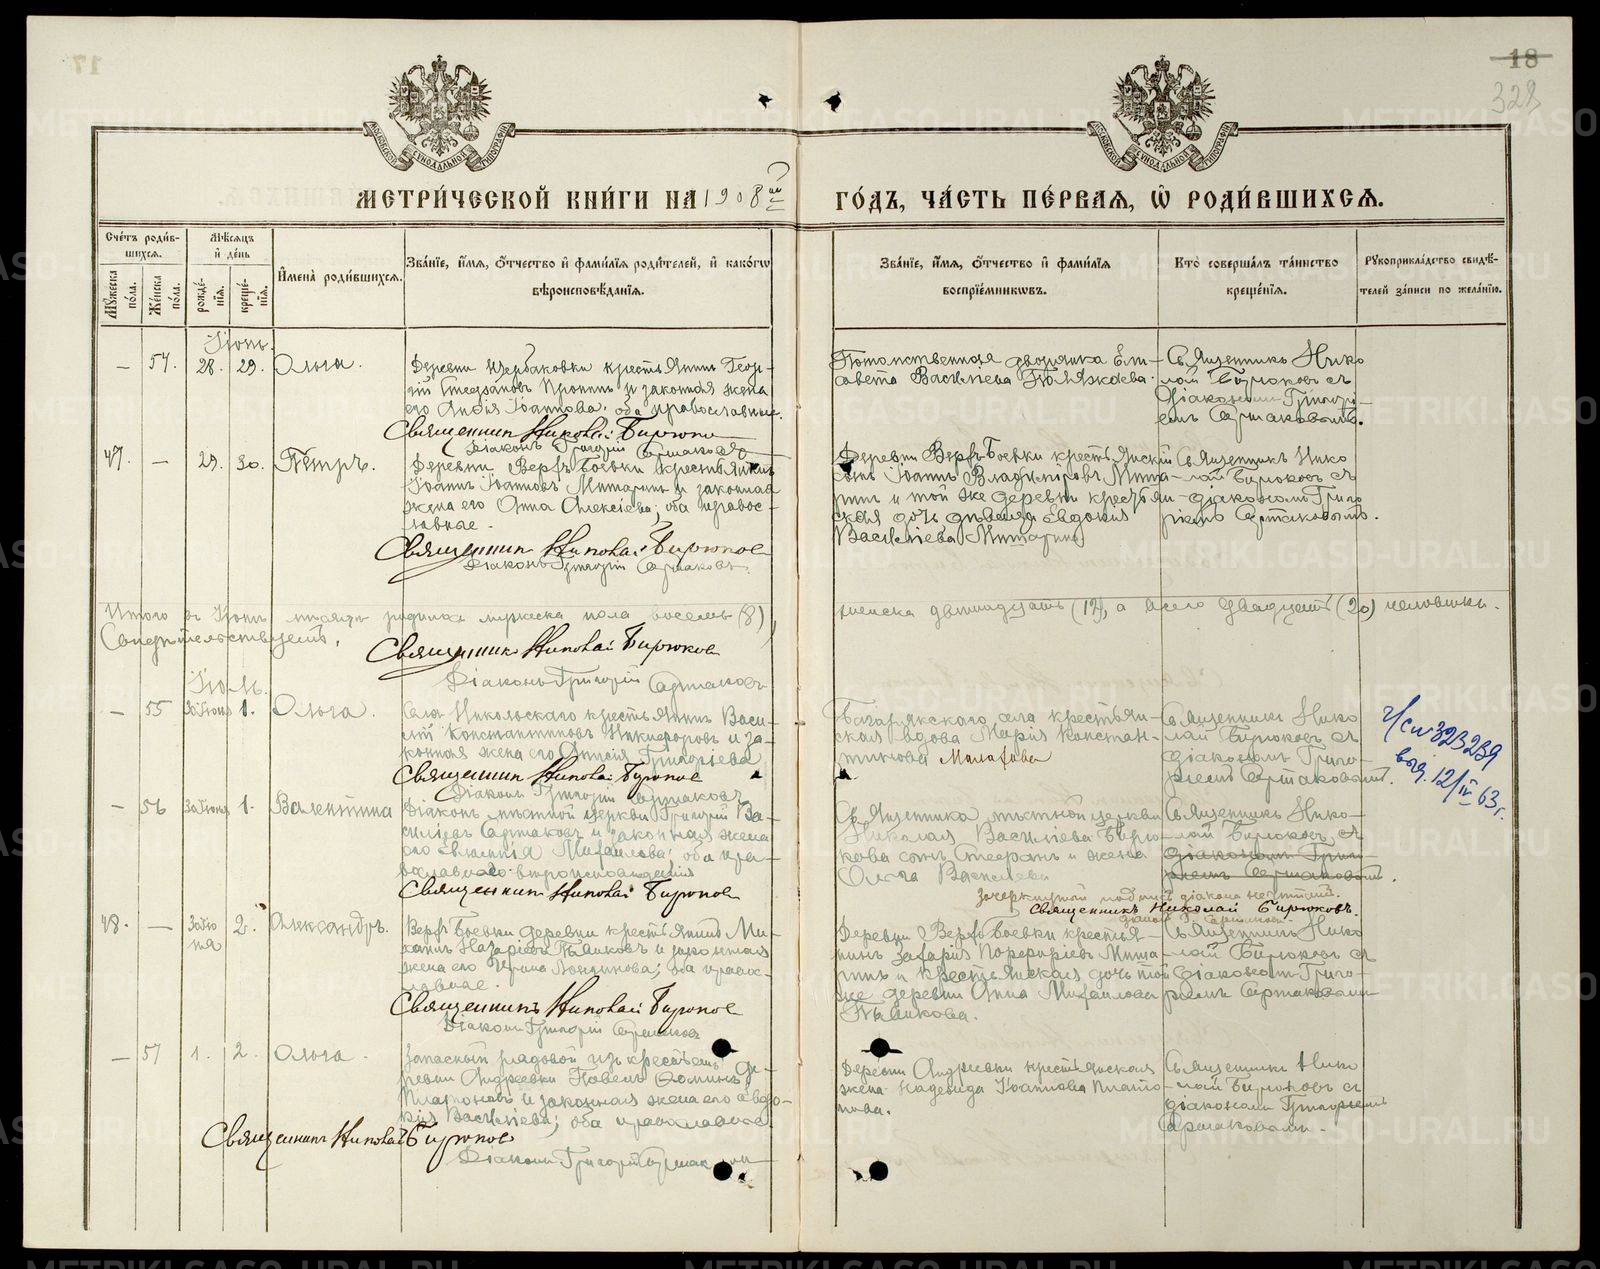 18
328
МЕТРИ́ЧЕСКОЙ КНИ́ГИ НА 1908 й ГО́ДЪ, ЧА́СТЬ ПЕ́РВАЯ, Ѡ РОДИ́ВШИХСЯ.
Сче́тъ роди́вшихся.
Мѣ́сяцъ и́ де́нь
Мꙋ́жеска по́ла.
Же́нска по́ла.
рожде́нїя.
креще́нїя.
И҆мена̀ роди́вшихся.
Зва́нїе, и҆́мя, ѻ҆́тчество и҆ фами́лїя роди́телей, и҆ како́гѡ вѣроисповѣ́данїя.
Зва́нїе, и҆́мя, ѻ҆́тчество и҆ фами́лїя воспрїе́мникѡвъ.
Кто̀ соверша́лъ та́инство креще́нїя.
Рꙋкоприкла́дство свидѣ́телей за́писи по жела́нїю.
Іюнь.
— 54. 28. 29. Ольга.
Деревни Щербаковки крестьянинъ Геор-
гій Стефановъ Пронинъ и законная жена
его Іоаннова; оба православные.
Священникъ Николай Бирюковъ
Діаконъ Григорій Сартаковъ
Потомственная дворянка Ели-
савета Васильева
Священникъ Нико-
лай Бирюковъ съ
діакономъ Григорі-
емъ Сартаковымъ.
47. — 29. 30. Петръ.
Деревни Верхъ-Боевки крестьянинъ
Іоаннъ Іоанновъ Митягинъ и законная
жена его Анна Алексіева; оба правос-
лавные.
Священникъ Николай Бирюковъ
Діаконъ Григорій Сартаковъ
Деревни Верхъ-Боевки крестьянскій
сынъ Іоаннъ Владиміровъ Митя-
гинъ и той же деревни крестьян-
ская дочь дѣвица Евдокія
Васильева Митягина
Священникъ Нико
лай Бирюковъ съ
діакономъ Григо
ріемъ Сартаковымъ.
Итого въ Іюнѣ мѣсяцѣ родилось мужеска пола восемь (8), женска двѣнадцать (12), а всего двадцать (20) человѣкъ.
Свидѣтельствуетъ,
Священникъ Николай Бирюковъ
Діаконъ Григорій Сартаковъ
Іюль.
— 55 30 Іюня 1. Ольга.
Села Никольскаго крестьянинъ Васи-
лій Константиновъ Никифоровъ и за-
конная жена его Григорьева
Священникъ Николай Бирюковъ
Діаконъ Григорій Сартаковъ
Багарякскаго села крестьян-
ская вдова Марія Констан-
тинова Малахова
Священникъ Нико
лай Бирюковъ съ
діакономъ Григо-
ріемъ Сартаковымъ.
323239
выд. 12/IV 63 г.
— 56 30 Іюня 1. Валентина
Діаконъ мѣстной церкви Григорій Ва-
сильевъ Сартаковъ и законная жена
его Михаилова; оба пра-
вославнаго вѣроисповѣданія
Священникъ Николай Бирюковъ
Священника мѣстной церкви
Николая Васильева Бирю-
кова сынъ Стефанъ и жена
Ольга Васильева
Священникъ Нико-
лай Бирюковъ съ
діакономъ Григо-
ріемъ Сартаковымъ.
Зачеркнутой подпись діакона не читать.
Священникъ Николай Бирюковъ.
48. — 30 Ію
ня 2. Александръ.
Верхъ-Боевки деревни крестьянинъ Ми-
хаилъ Назаріевъ Пьянковъ и законная
жена его Ирина Логгинова; оба правос-
лавные.
Священникъ Николай Бирюковъ
Діаконъ Григорій Сартаковъ
Деревни Верхъ-Боевки крестья-
нинъ Захарія Порфиріевъ Митя-
гинъ и крестьянская дочь той
же деревни Анна Михаилова
Пьянкова.
Священникъ Нико
лай Бирюковъ съ
діакономъ Григо-
ріемъ Сартаковымъ
— 57 1. 2. Ольга.
Запасный рядовой изъ крестьянъ де-
ревни Андреевки Павелъ Фоминъ
Платоновъ и законная жена его Евдо-
кія Васильева; оба православные.
Священникъ Николай Бирюковъ
Діаконъ Григорій Сартаковъ
Деревни Андреевки крестьянская
жена Надежда Іоаннова Плато-
нова.
Священникъ Нико
лай Бирюковъ съ
діакономъ Григорьемъ
Сартаковымъ.
METRIKI.GASO-URAL.RU